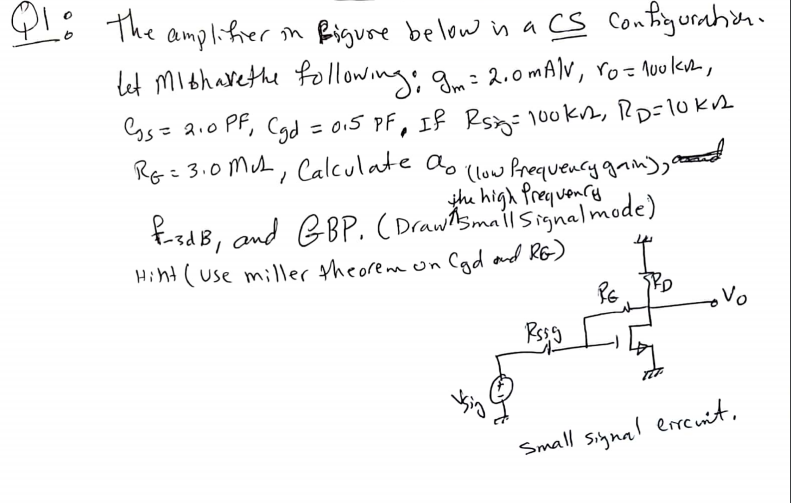 Q1: The amplifier in Figure below is a CS Configuration.
let M1 have the following: gm = 2.0 mA/V, ro = 100 kΩ,
Cgs = 2.0 PF, Cgd = 0.5 PF, If Rsig = 100 kΩ, RD = 10 kΩ
RG = 3.0 MΩ, Calculate ao (low frequency gain),
the high frequency
f-3dB, and GBP. (Draw small signal mode)
Hint (use miller theorem on Cgd and RG)
RD
RG
Vo
Rsig
Vsig
+
-
small signal circuit.